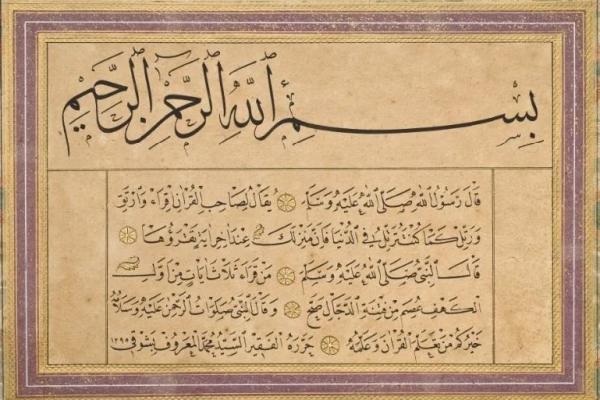 بِسْمِ ٱللَّهِ ٱلرَّحْمٰنِ ٱلرَّحِيمِ
قَالَ رَسُولُ اللّٰهِ صَلَّى اللّٰهُ عَلَيْهِ وَسَلَّمَ يُقَالُ لِصَاحِبِ الْقُرْاٰنِ اِقْرَاْ وَارْتَقِ
وَرَتِّلْ كَمَا كُنْتَ تُرَتِّلُ فِي الدُّنْيَا فَاِنَّ مَنْزِلَكَ عِنْدَ اٰخِرِ اٰيَةٍ تَقْرَؤُهَا
قَالَ النَّبِيُّ صَلَّى اللّٰهُ عَلَيْهِ وَسَلَّمَ مَنْ قَرَاَ ثَلَاثَ اٰيَاتٍ مِنْ اَوَّلِ
الْكَهْفِ عُصِمَ مِنْ فِتْنَةِ الدَّجَّالِ صح وَقَالَ النَّبِيُّ صَلَوَاتُ الرَّحْمٰنِ عَلَيْهِ وَسَلَامُهُ
خَيْرُكُمْ مَنْ تَعَلَّمَ الْقُرْاٰنَ وَعَلَّمَهُ حَرَّرَهُ الْفَقِيرُ السَّيِّدُ مُحَمَّدُ الْمَعْرُوفُ بِشَوْقِي ١٢٩٥